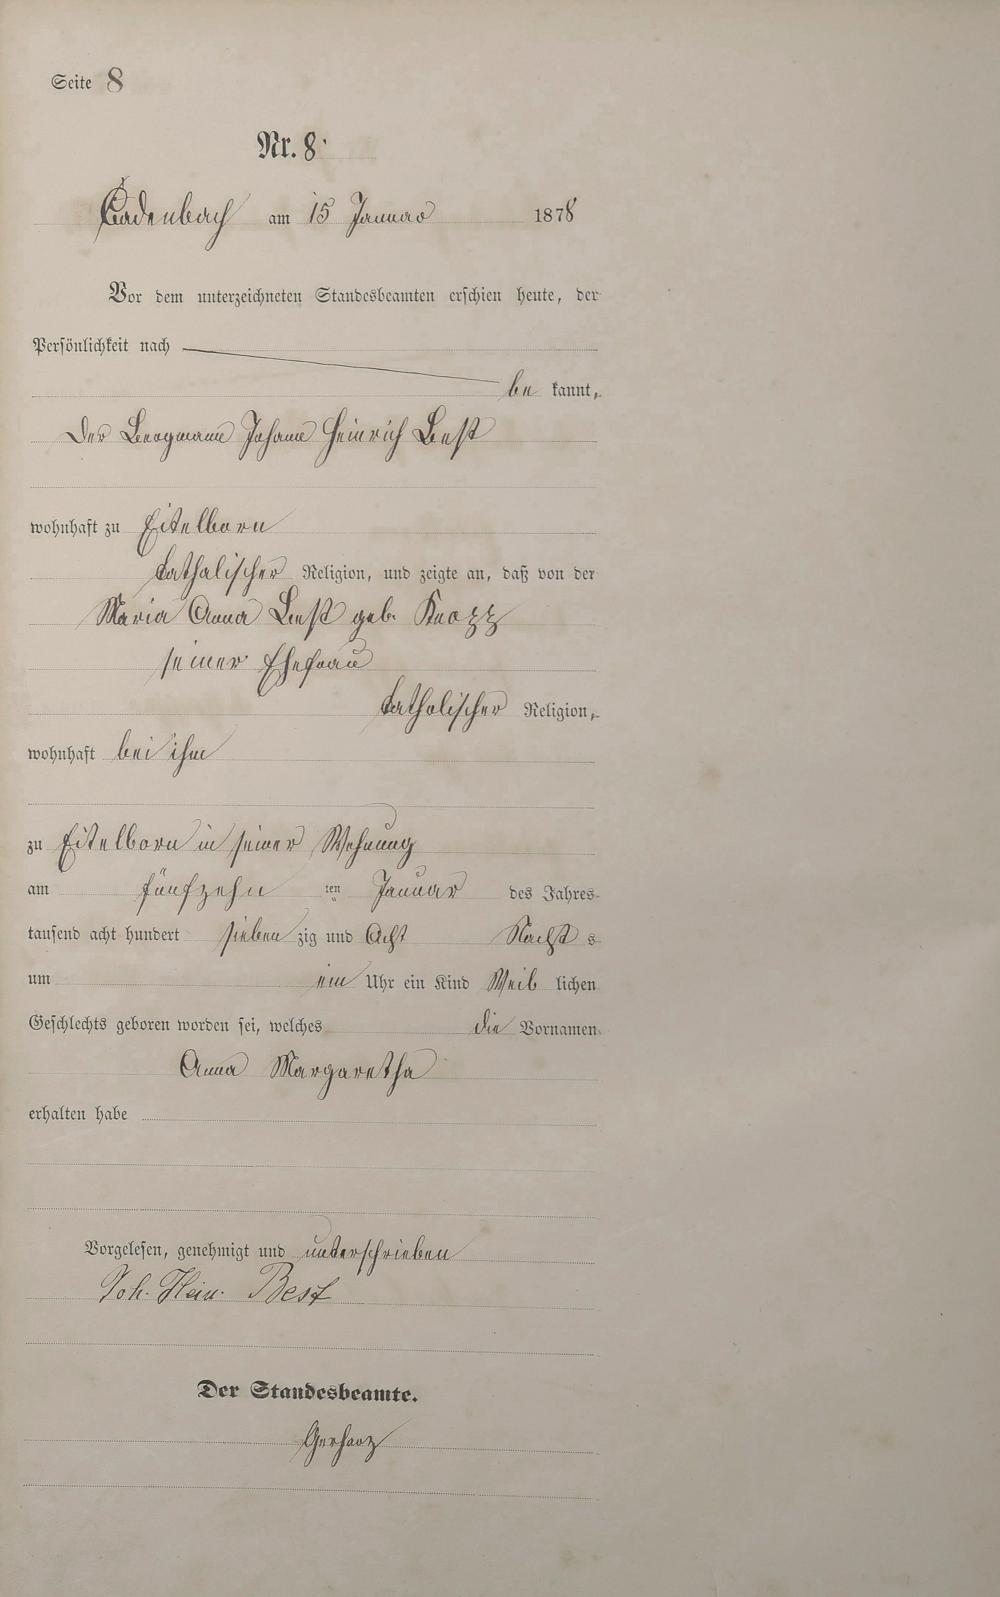 Seite 8
Nr. 8.
Cadenbach am 15 Januar 1878
Vor dem unterzeichneten Standesbeamten erschien heute, der
Persönlichkeit nach
be kannt,
der Bergmann Johann Heinrich Best
wohnhaft zu Eitelborn
katholischer Religion, und zeigte an, daß von der
Maria Anna Best geb. Knopp
seiner Ehefrau
katholischer Religion,
wohnhaft bei ihm
zu Eitelborn in seiner Wohnung
am fünfzehn ten Januar des Jahres
tausend acht hundert sieben zig und Acht Nacht s
um ein Uhr ein Kind Weib lichen
Geschlechts geboren worden sei, welches die Vornamen
Anna Margaretha
erhalten habe
Vorgelesen, genehmigt und unterschrieben
Joh. Hein. Best
Der Standesbeamte.
Gerharz